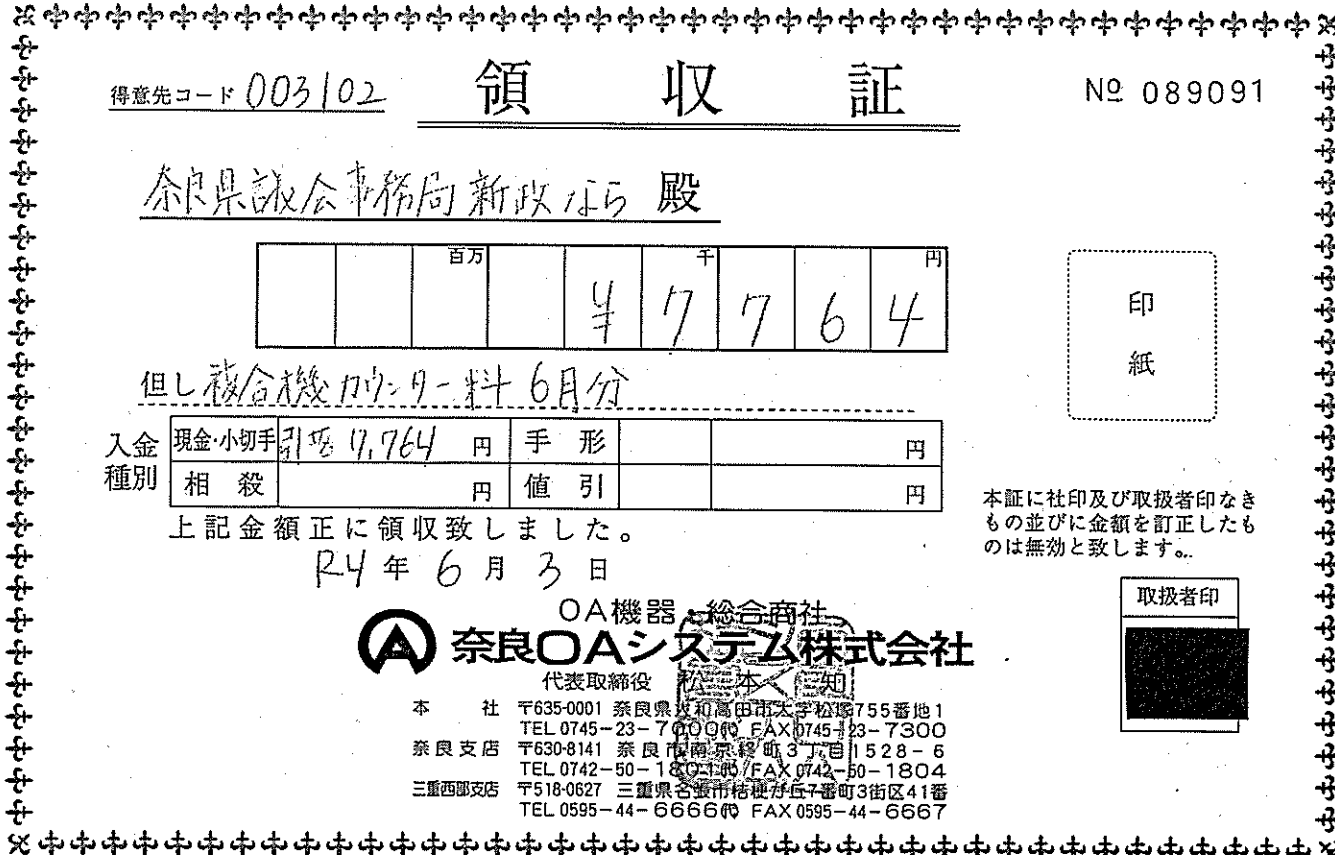 得意先コード 003102
領収証
№ 089091
奈良県議会事務局 新政なら 殿
百万 千 円
¥7764
印紙
但し 複合機カウンター料 6月分
入金種別
現金・小切手 引落 7,764 円 手形 円
相殺 円 値引 円
上記金額正に領収致しました。
R4年 6月 3日
本証に社印及び取扱者印なき
もの並びに金額を訂正したも
のは無効と致します。
取扱者印
OA機器・総合商社
奈良OAシステム株式会社
代表取締役 松本 知
本社 〒635-0001 奈良県大和高田市大字松塚755番地1
TEL 0745-23-7000㈹ FAX 0745-23-7300
奈良支店 〒630-8141 奈良市南京終町3丁目1528-6
TEL 0742-50-1801㈹ FAX 0742-50-1804
三重西部支店 〒518-0627 三重県名張市桔梗が丘7番町3街区41番
TEL 0595-44-6666㈹ FAX 0595-44-6667